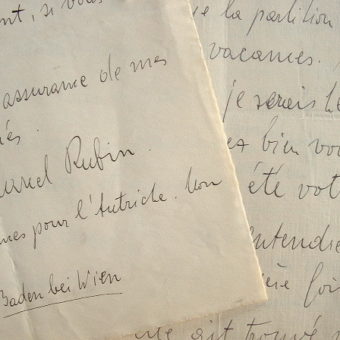 nt, si vous
assurance de mes
és.
arcel Rubin.
mes pour l'Autriche. Mon
Baden bei Wien
e la partition
vacances.
je serais he
ez bien vou
été vot
entendre
ière foi
Me ait trouvé